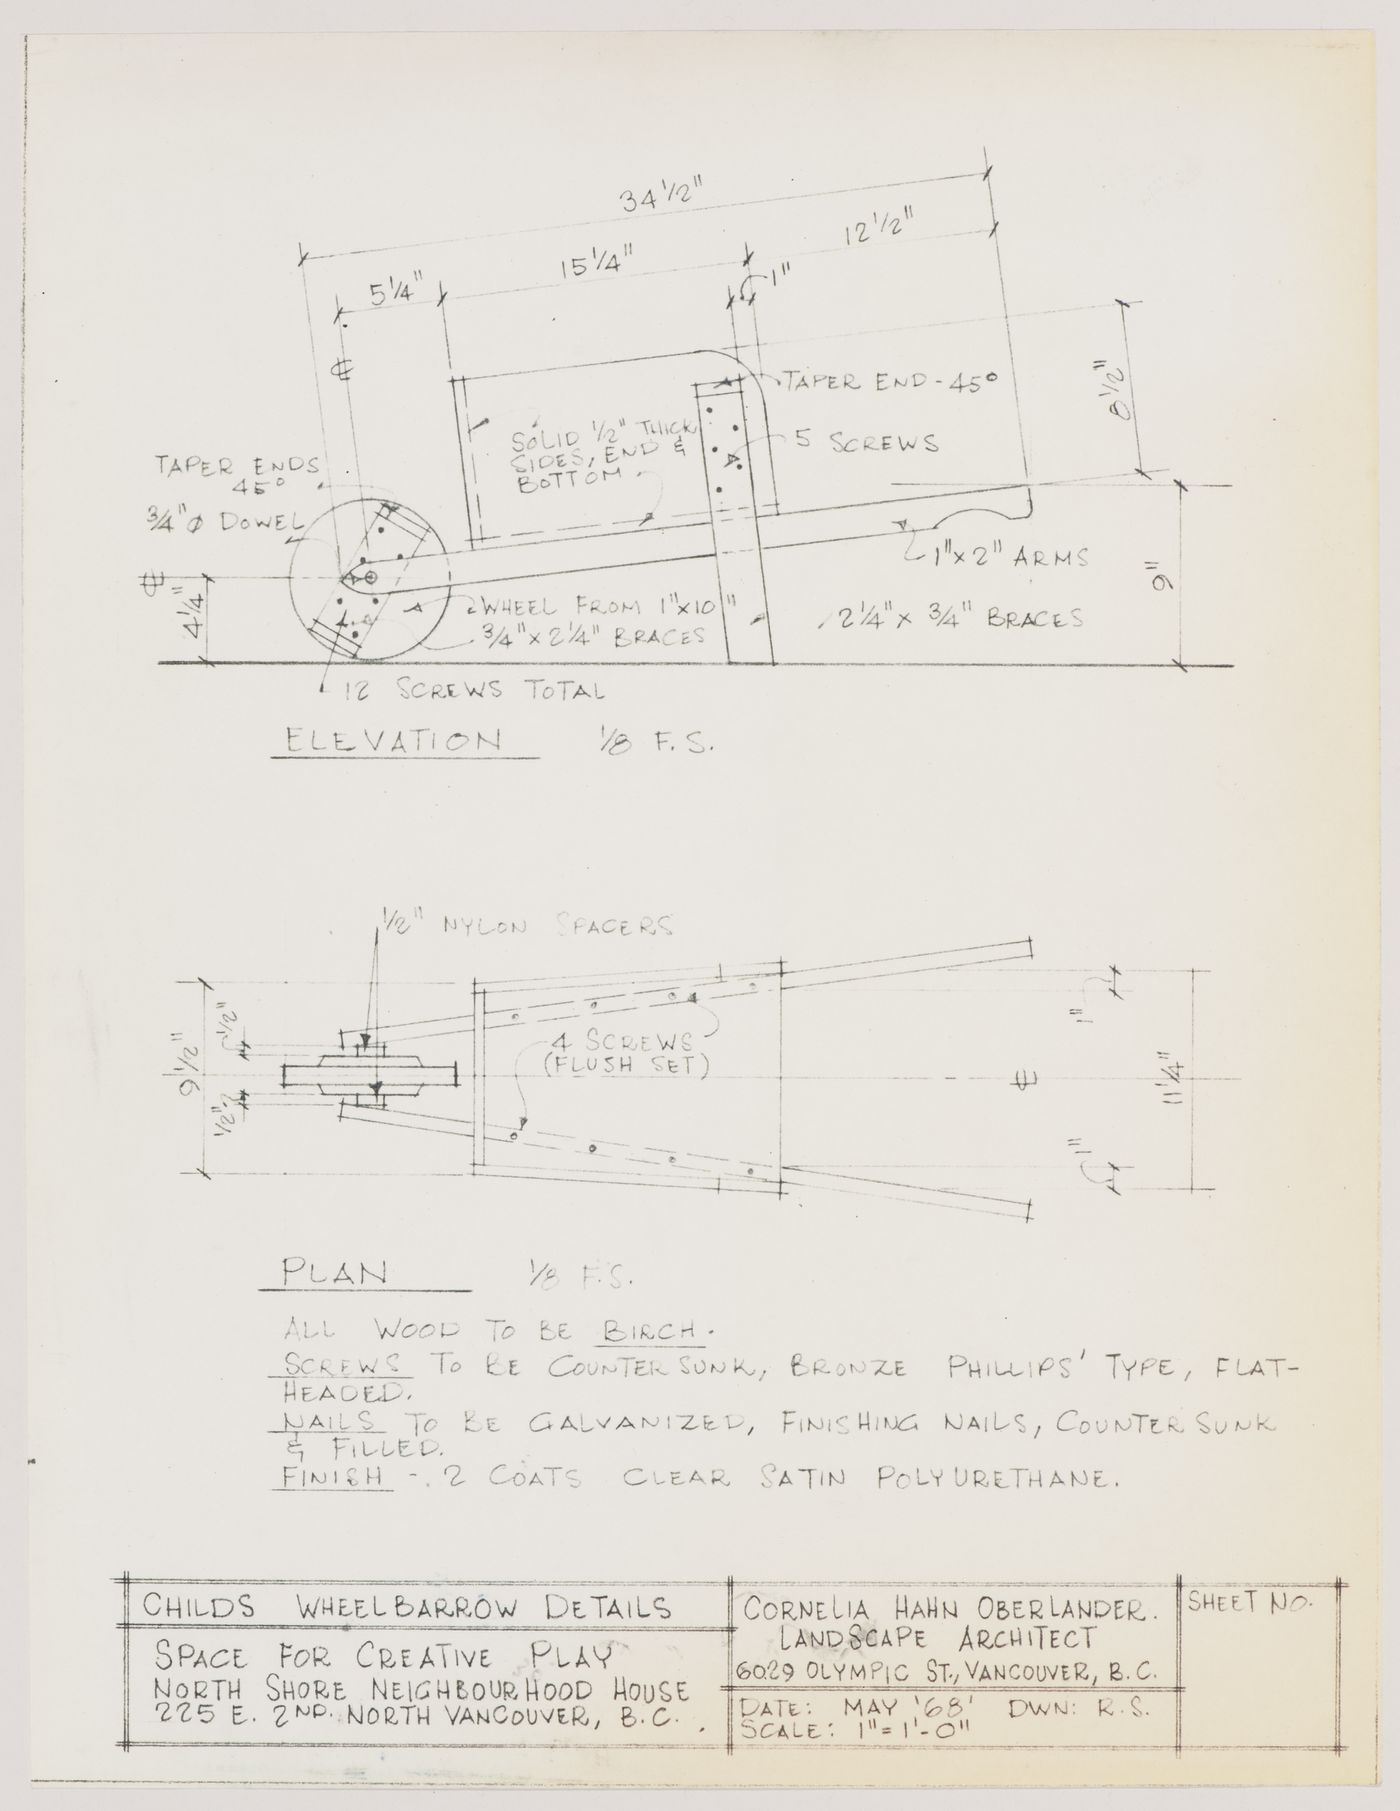 34 1/2"
12 1/2"
15 1/4"
1"
5 1/4"
℄
TAPER END - 45°
8 1/2"
SOLID 1/2" THICK
SIDES, END &
BOTTOM.
5 SCREWS
TAPER ENDS
45°
3/4" ø DOWEL
1" x 2" ARMS
9"
℄
4 1/4"
WHEEL FROM 1" x 10"
3/4" x 2 1/4" BRACES
2 1/4" x 3/4" BRACES
12 SCREWS TOTAL
ELEVATION 1/8 F.S.
1/2" NYLON SPACERS
1/2"
9 1/2"
1/2"
4 SCREWS
(FLUSH SET)
1"
℄
11 1/4"
1"
PLAN 1/8 F.S.
ALL WOOD TO BE BIRCH.
SCREWS TO BE COUNTER SUNK, BRONZE PHILLIPS' TYPE, FLAT-
HEADED.
NAILS TO BE GALVANIZED, FINISHING NAILS, COUNTER SUNK
& FILLED.
FINISH - 2 COATS CLEAR SATIN POLYURETHANE.
CHILDS WHEELBARROW DETAILS
SPACE FOR CREATIVE PLAY
NORTH SHORE NEIGHBOURHOOD HOUSE
225 E. 2ND. NORTH VANCOUVER, B.C.
CORNELIA HAHN OBERLANDER.
LANDSCAPE ARCHITECT
6029 OLYMPIC ST., VANCOUVER, B.C.
DATE: MAY '68' DWN: R.S.
SCALE: 1" = 1'-0"
SHEET NO.